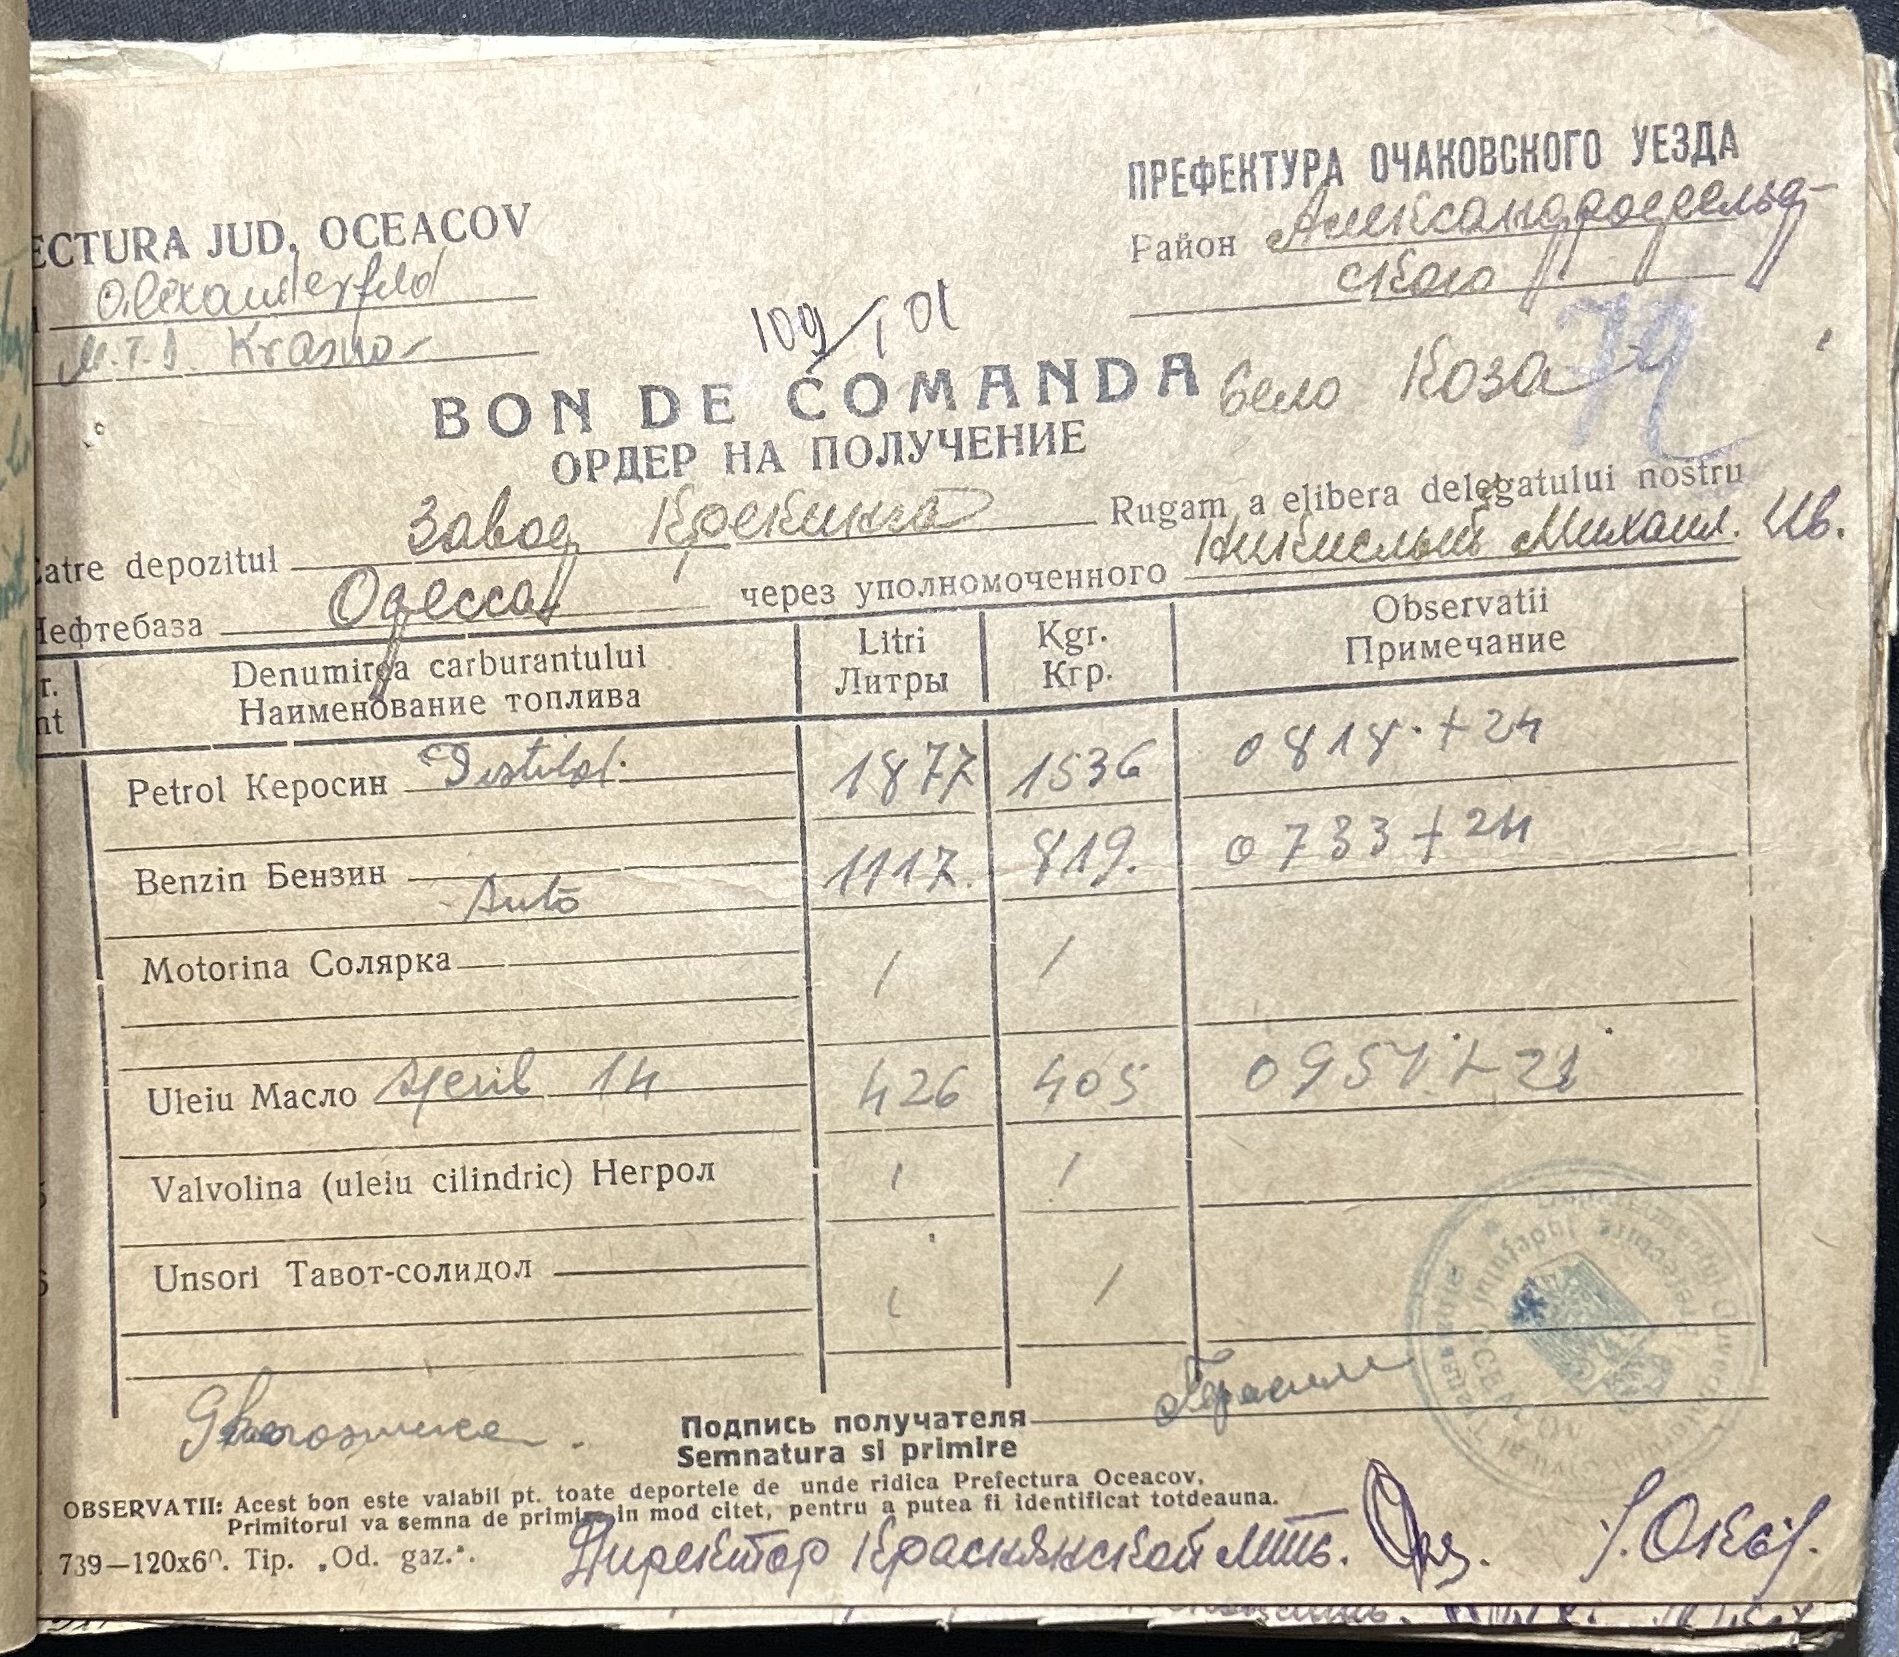 ECTURA JUD. OCEACOV
Alexanderfeld
M.T.S. Krasno-
ПРЕФЕКТУРА ОЧАКОВСКОГО УЕЗДА
Район Александрфельд-
ского
109/
72
BON DE COMANDA
село Коза
ОРДЕР НА ПОЛУЧЕНИЕ
Catre depozitul Завод Крекинга Rugam a elibera delegatului nostru
Нефтебаза Одесса через уполномоченного Михаил. Ив.
r.
nt
Denumirea carburantului Litri Kgr. Observatii
Наименование топлива Литры Кгр. Примечание
Petrol Керосин Distilat. 1877 1536 0818 + 24
Benzin Бензин Auto 1117. 819. 0733 + 24
Motorina Солярка / /
Uleiu Масло 14 426 405 0951 + 21
Valvolina (uleiu cilindric) Негрол / /
Unsori Тавот-солидол / /
OCEACOV
Подпись получателя
Semnatura si primire
OBSERVATII: Acest bon este valabil pt. toate deportele de unde ridica Prefectura Oceacov.
Primitorul va semna de primire in mod citet, pentru a putea fi identificat totdeauna.
739—120x60. Tip. „Od. gaz.“.
Директор Краснянской мтс.